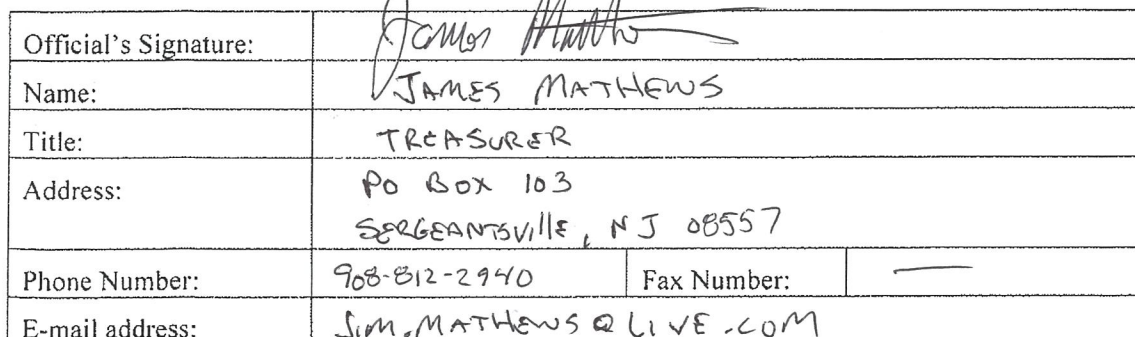 Official's Signature: James Mathews
Name: JAMES MATHEWS
Title: TREASURER
Address: PO BOX 103
SERGEANTSVILLE, NJ 08557
Phone Number: 908-812-2940 Fax Number: —
E-mail address: JIM.MATHEWS@LIVE.COM